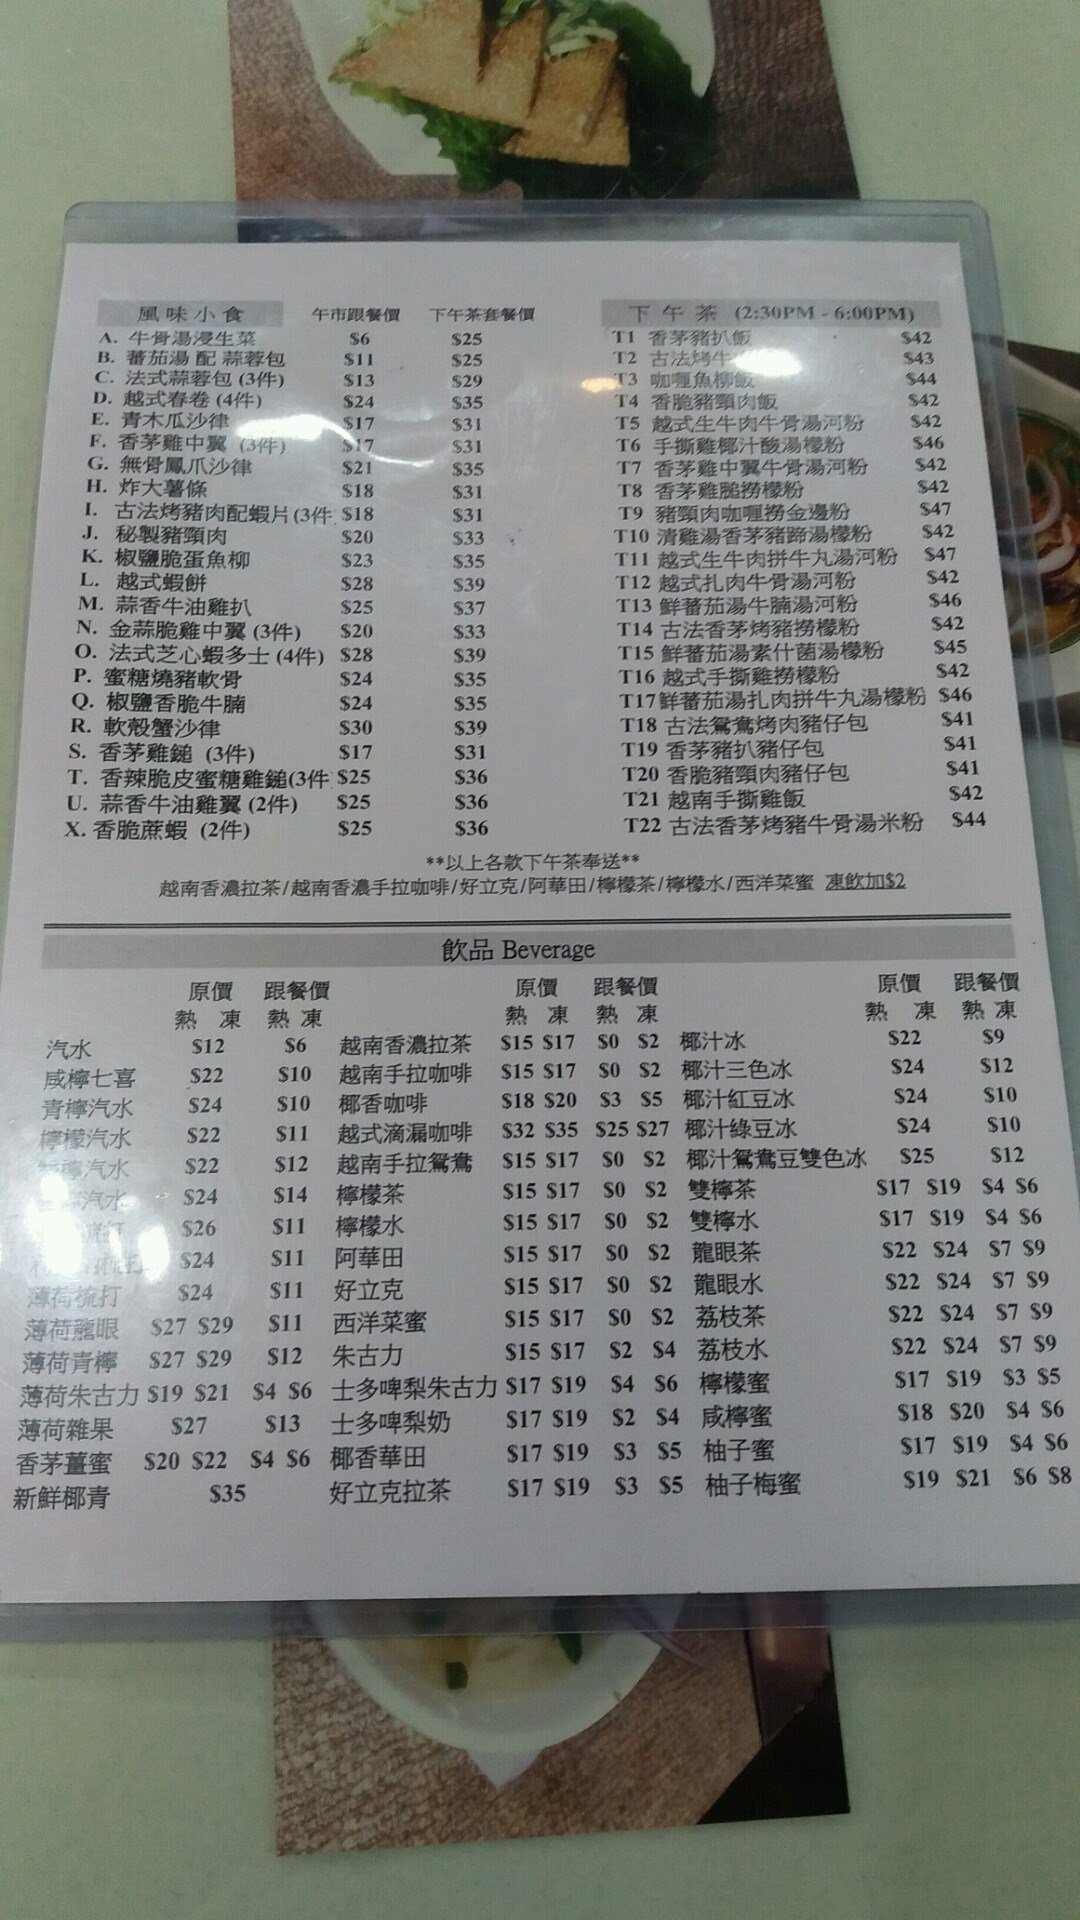 風味小食 午市跟餐價 下午茶套餐價
A. 牛骨湯浸生菜 $6 $25
B. 蕃茄湯 配 蒜蓉包 $11 $25
C. 法式蒜蓉包 (3件) $13 $29
D. 越式春卷 (4件) $24 $35
E. 青木瓜沙律 $17 $31
F. 香茅雞中翼 (3件) $17 $31
G. 無骨鳳爪沙律 $21 $35
H. 炸大薯條 $18 $31
I. 古法烤豬肉配蝦片(3件 $18 $31
J. 秘製豬頸肉 $20 $33
K. 椒鹽脆蛋魚柳 $23 $35
L. 越式蝦餅 $28 $39
M. 蒜香牛油雞扒 $25 $37
N. 金蒜脆雞中翼 (3件) $20 $33
O. 法式芝心蝦多士 (4件) $28 $39
P. 蜜糖燒豬軟骨 $24 $35
Q. 椒鹽香脆牛腩 $24 $35
R. 軟殼蟹沙律 $30 $39
S. 香茅雞鎚 (3件) $17 $31
T. 香辣脆皮蜜糖雞鎚(3件 $25 $36
U. 蒜香牛油雞翼 (2件) $25 $36
X. 香脆蔗蝦 (2件) $25 $36
下午茶 (2:30PM - 6:00PM)
T1 香茅豬扒飯 $42
T2 古法烤牛 $43
T3 咖喱魚柳飯 $44
T4 香脆豬頸肉飯 $42
T5 越式生牛肉牛骨湯河粉 $42
T6 手撕雞椰汁酸湯檬粉 $46
T7 香茅雞中翼牛骨湯河粉 $42
T8 香茅雞髀撈檬粉 $42
T9 豬頸肉咖喱撈金邊粉 $47
T10 清雞湯香茅豬蹄湯檬粉 $42
T11 越式生牛肉拼牛丸湯河粉 $47
T12 越式扎肉牛骨湯河粉 $42
T13 鮮蕃茄湯牛腩湯河粉 $46
T14 古法香茅烤豬撈檬粉 $42
T15 鮮蕃茄湯素什菌湯檬粉 $45
T16 越式手撕雞撈檬粉 $42
T17 鮮蕃茄湯扎肉拼牛丸湯檬粉 $46
T18 古法鴛鴦烤肉豬仔包 $41
T19 香茅豬扒豬仔包 $41
T20 香脆豬頸肉豬仔包 $41
T21 越南手撕雞飯 $42
T22 古法香茅烤豬牛骨湯米粉 $44
**以上各款下午茶奉送**
越南香濃拉茶/越南香濃手拉咖啡/好立克/阿華田/檸檬茶/檸檬水/西洋菜蜜 凍飲加$2
飲品 Beverage
原價 跟餐價 原價 跟餐價 原價 跟餐價
熱 凍 熱 凍 熱 凍 熱 凍 熱 凍 熱 凍
汽水 $12 $6 越南香濃拉茶 $15 $17 $0 $2 椰汁冰 $22 $9
咸檸七喜 $22 $10 越南手拉咖啡 $15 $17 $0 $2 椰汁三色冰 $24 $12
青檸汽水 $24 $10 椰香咖啡 $18 $20 $3 $5 椰汁紅豆冰 $24 $10
檸檬汽水 $22 $11 越式滴漏咖啡 $32 $35 $25 $27 椰汁綠豆冰 $24 $10
檸汽水 $22 $12 越南手拉鴛鴦 $15 $17 $0 $2 椰汁鴛鴦豆雙色冰 $25 $12
汽水 $24 $14 檸檬茶 $15 $17 $0 $2 雙檸茶 $17 $19 $4 $6
梳打 $26 $11 檸檬水 $15 $17 $0 $2 雙檸水 $17 $19 $4 $6
$24 $11 阿華田 $15 $17 $0 $2 龍眼茶 $22 $24 $7 $9
薄荷梳打 $24 $11 好立克 $15 $17 $0 $2 龍眼水 $22 $24 $7 $9
薄荷龍眼 $27 $29 $11 西洋菜蜜 $15 $17 $0 $2 荔枝茶 $22 $24 $7 $9
薄荷青檸 $27 $29 $12 朱古力 $15 $17 $2 $4 荔枝水 $22 $24 $7 $9
薄荷朱古力 $19 $21 $4 $6 士多啤梨朱古力 $17 $19 $4 $6 檸檬蜜 $17 $19 $3 $5
薄荷雜果 $27 $13 士多啤梨奶 $17 $19 $2 $4 咸檸蜜 $18 $20 $4 $6
香茅薑蜜 $20 $22 $4 $6 椰香華田 $17 $19 $3 $5 柚子蜜 $17 $19 $4 $6
新鮮椰青 $35 好立克拉茶 $17 $19 $3 $5 柚子梅蜜 $19 $21 $6 $8